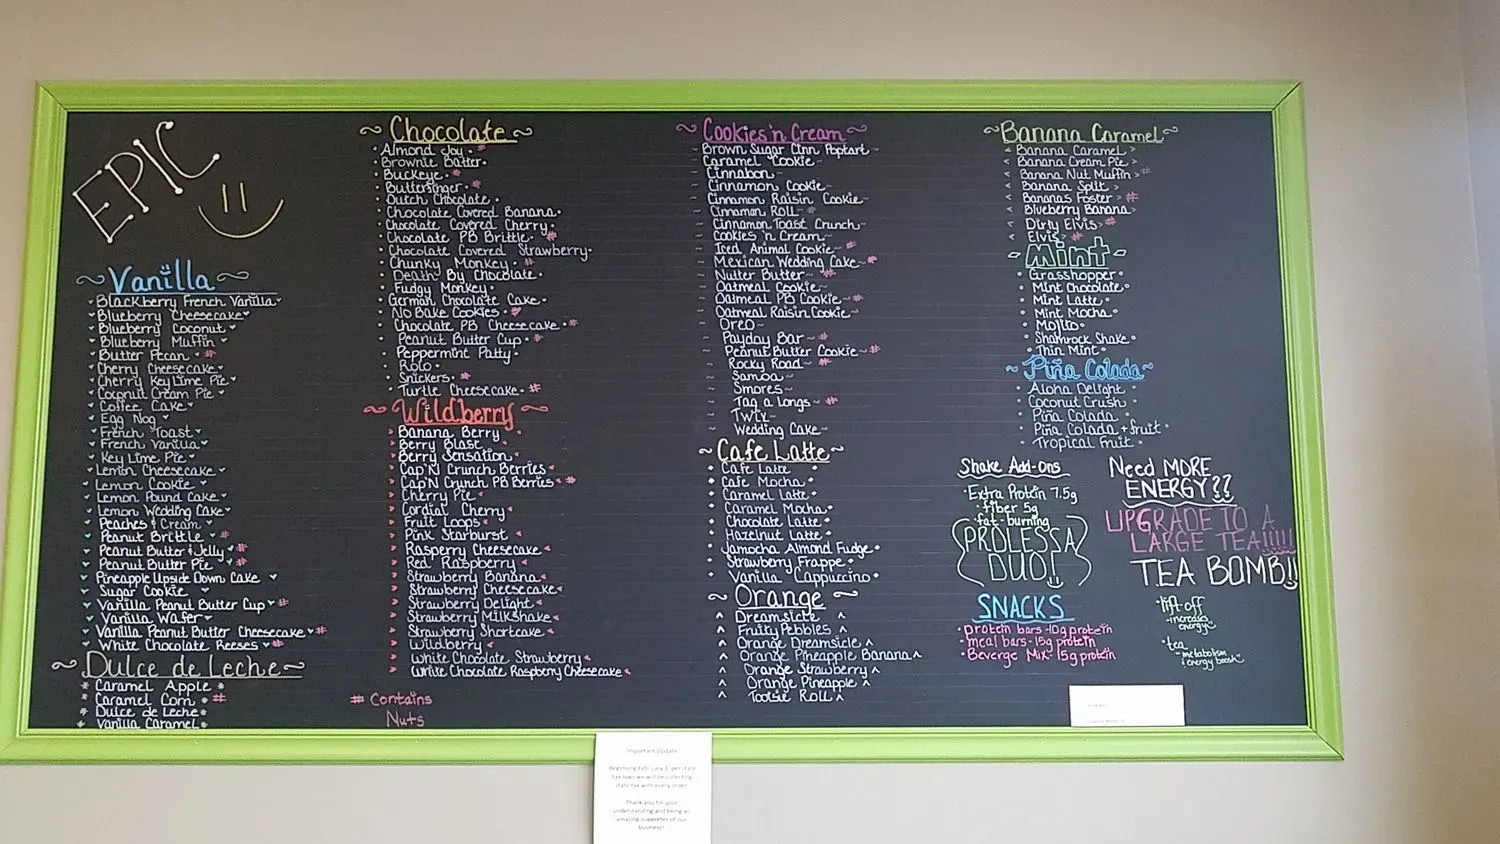 EPIC
~Vanilla~
Blackberry French Vanilla
Blueberry Cheesecake
Blueberry Coconut
Blueberry Muffin
Butter Pecan #
Cherry Cheesecake
Cherry Key Lime Pie
Coconut Cream Pie
Coffee Cake
Egg Nog
French Toast
French Vanilla
Key Lime Pie
Lemon Cheesecake
Lemon Cookie
Lemon Pound Cake
Lemon Wedding Cake
Peaches & Cream
Peanut Brittle #
Peanut Butter & Jelly #
Peanut Butter Pie #
Pineapple Upside Down Cake
Sugar Cookie
Vanilla Peanut Butter Cup #
Vanilla Wafer
Vanilla Peanut Butter Cheesecake #
White Chocolate Reeses #
~Dulce de Leche~
Caramel Apple
Caramel Corn #
Dulce de Leche
Vanilla Caramel
~Chocolate~
Almond Joy #
Brownie Batter
Buckeye #
Butterfinger #
Dutch Chocolate
Chocolate Covered Banana
Chocolate Covered Cherry
Chocolate PB Brittle #
Chocolate Covered Strawberry
Chunky Monkey #
Death By Chocolate
Fudgy Monkey
German Chocolate Cake
No Bake Cookies #
Chocolate PB Cheesecake #
Peanut Butter Cup #
Peppermint Patty
Rolo
Snickers #
Turtle Cheesecake #
~Wildberry~
Banana Berry
Berry Blast
Berry Sensation
Cap'N Crunch Berries
Cap'N Crunch PB Berries #
Cherry Pie
Cordial Cherry
Fruit Loops
Pink Starburst
Rasperry Cheesecake
Red Raspberry
Strawberry Banana
Strawberry Cheesecake
Strawberry Delight
Strawberry Milkshake
Strawberry Shortcake
Wildberry
White Chocolate Strawberry
White Chocolate Raspberry Cheesecake
# Contains
Nuts
~Cookies 'n Cream~
Brown Sugar Cinn Poptart
Caramel Cookie
Cinnabon
Cinnamon Cookie
Cinnamon Raisin Cookie
Cinnamon Roll #
Cinnamon Toast Crunch
Cookies 'n Cream
Iced Animal Cookie #
Mexican Wedding Cake #
Nutter Butter #
Oatmeal Cookie
Oatmeal PB Cookie #
Oatmeal Raisin Cookie
Oreo
Payday Bar #
Peanut Butter Cookie #
Rocky Road #
Samoa
Smores
Tag a Longs #
Twix
Wedding Cake
~Cafe Latte~
Cafe Latte
Cafe Mocha
Caramel Latte
Caramel Mocha
Chocolate Latte
Hazelnut Latte
Jamocha Almond Fudge
Strawberry Frappe
Vanilla Cappuccino
~Orange~
Dreamsicle
Fruity Pebbles
Orange Dreamsicle
Orange Pineapple Banana
Orange Strawberry
Orange Pineapple
Tootsie Roll
~Banana Caramel~
Banana Caramel
Banana Cream Pie
Banana Nut Muffin #
Banana Split
Bananas Foster #
Blueberry Banana
Dirty Elvis #
Elvis #
-Mint-
Grasshopper
Mint Chocolate
Mint Latte
Mint Mocha
Mojito
Shamrock Shake
Thin Mint
~Piña Colada~
Aloha Delight
Coconut Crush
Piña Colada
Piña Colada + fruit
Tropical Fruit
Shake Add-Ons
Extra Protein 7.5g
fiber 5g
fat-burning
PROLESSA
DUO!
SNACKS
protein bars-10g protein
meal bars-15g protein
Beverge Mix-15g protein
Need MORE
ENERGY??
UPGRADE TO A
LARGE TEA!!!!!
TEA BOMB!!
lift off
-increases
energy
tea
-metabolism
& energy boost
Important Update
Beginning February 1, per state
tax laws we will be collecting
state tax with every order.
Thank you for your
understanding and being an
amazing supporter of our
business!